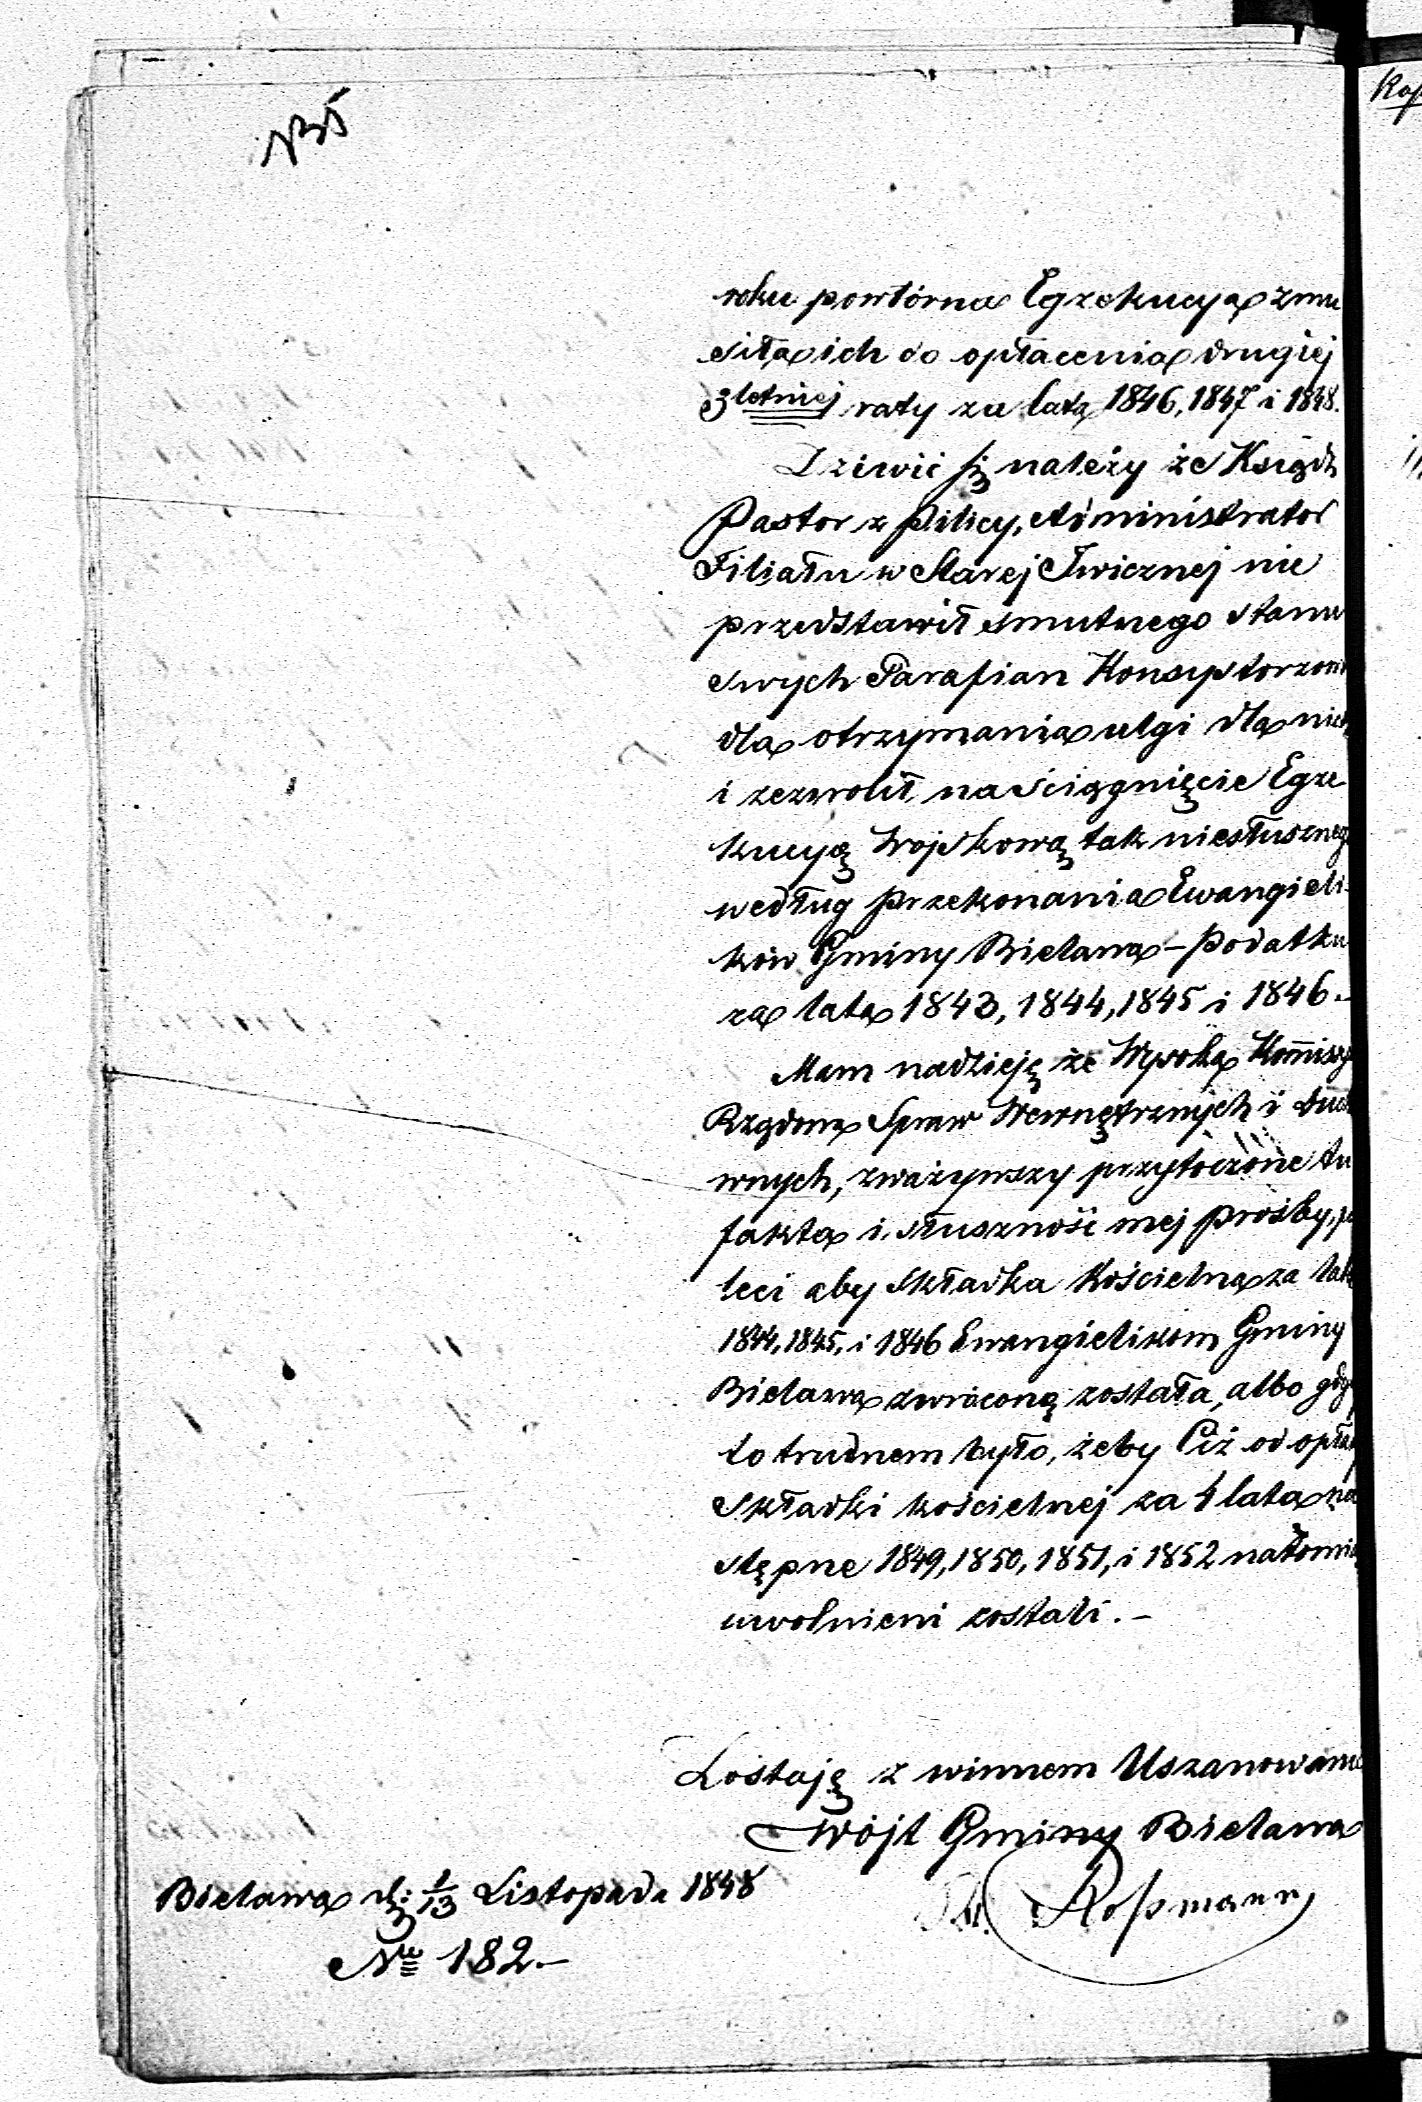 roku powtórna Egzekucya zmu
siła ich do opłacenia drugiej
3letniej raty za lata 1846, 1847 i 1848.
Dziwić się należy że Ksiądz
Pastor z Pilicy, Administrator
Filiału w Starej Iwicznej nie
przedstawił smutnego stanu
swych Parafian Konsystorzowi
dla otrzymania ulgi dla nich
i zezwolił na ściągnięcie Egze
kucyą Wojskową tak niesłusznego
według przekonania Ewangieli-
ków Gminy Bielawa – podatku
za lata 1843, 1844, 1845 i 1846.–
Mam nadzieję że Wysoka Kommissya
Rządowa Spraw Wewnętrznych i Duch
wnych, zważywszy przytoczone tu
fakta i słuszność mej prośby, po
leci aby składka Kościelna za lata
1844, 1845, i 1846 Ewangielikom Gminy
Bielawa zwróconą została, albo gdyby
to trudnem było, żeby Ciż od opłaty
Składki kościelnej za 4 lata na
stępne 1849, 1850, 1851, i 1852 natomiast
uwolnieni zostali.–
Zostaję z winnem Uszanowaniem
Wójt Gminy Bielawa
Roßmann
Bielawa d. 1/13 Listopada 1848
No 182.–
Kop